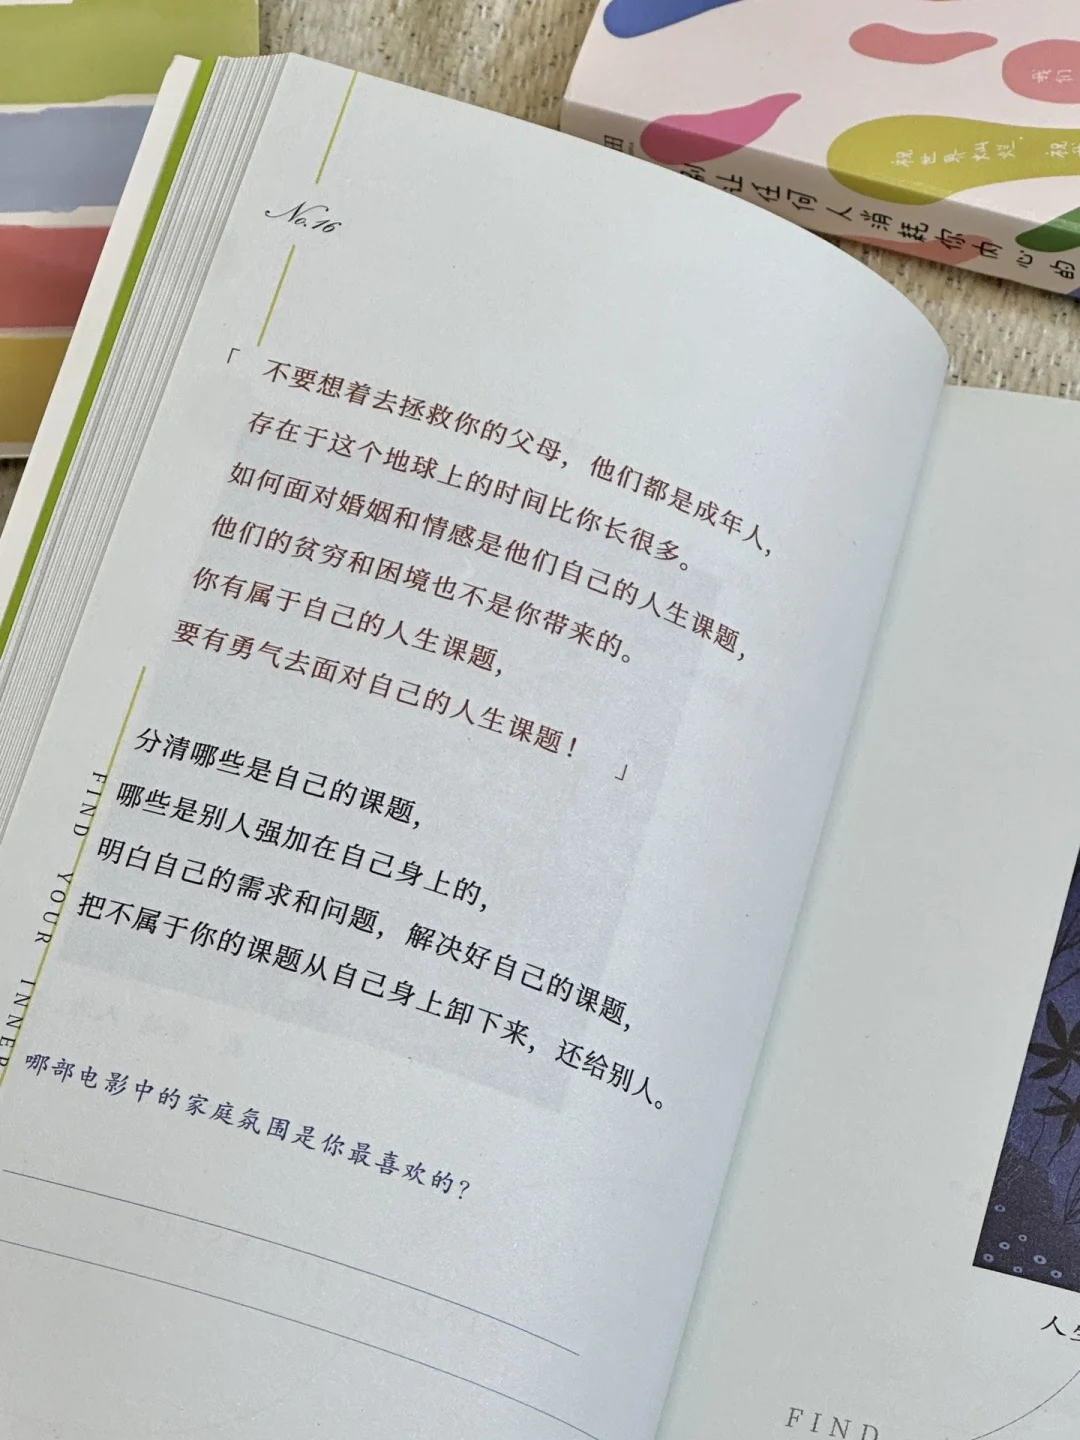 我们
祝世界灿烂,
让任何人消耗你内心的
No.16
「不要想着去拯救你的父母，他们都是成年人，
存在于这个地球上的时间比你长很多。
如何面对婚姻和情感是他们自己的人生课题，
他们的贫穷和困境也不是你带来的。
你有属于自己的人生课题，
要有勇气去面对自己的人生课题！」
分清哪些是自己的课题，
哪些是别人强加在自己身上的，
明白自己的需求和问题，解决好自己的课题，
把不属于你的课题从自己身上卸下来，还给别人。
FIND YOUR INNER
哪部电影中的家庭氛围是你最喜欢的？
FIND